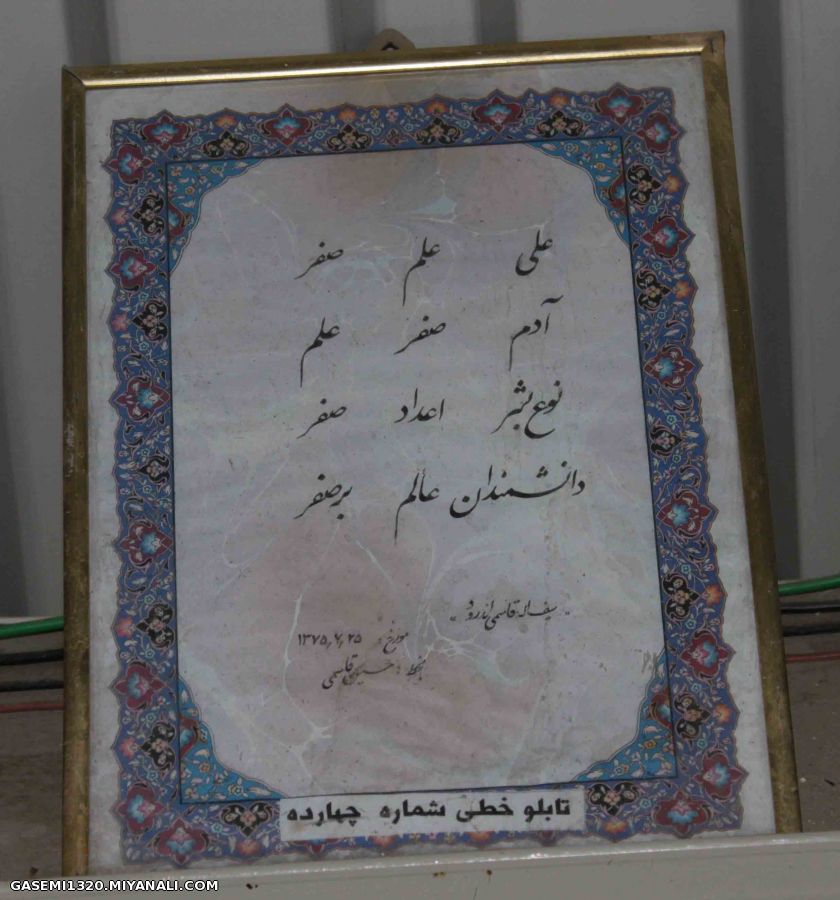 علی علم صفر
آدم صفر علم
نوع بشر اعداد صفر
دانشمندان عالم بر صفر
"سیف اله قاسمی اندرود"
مورخ: ۱۳۷۵٫۲٫۲۵
بخط: حسین قاسمی
تابلو خطی شماره چهارده
GASEMI1320.MIYANALI.COM